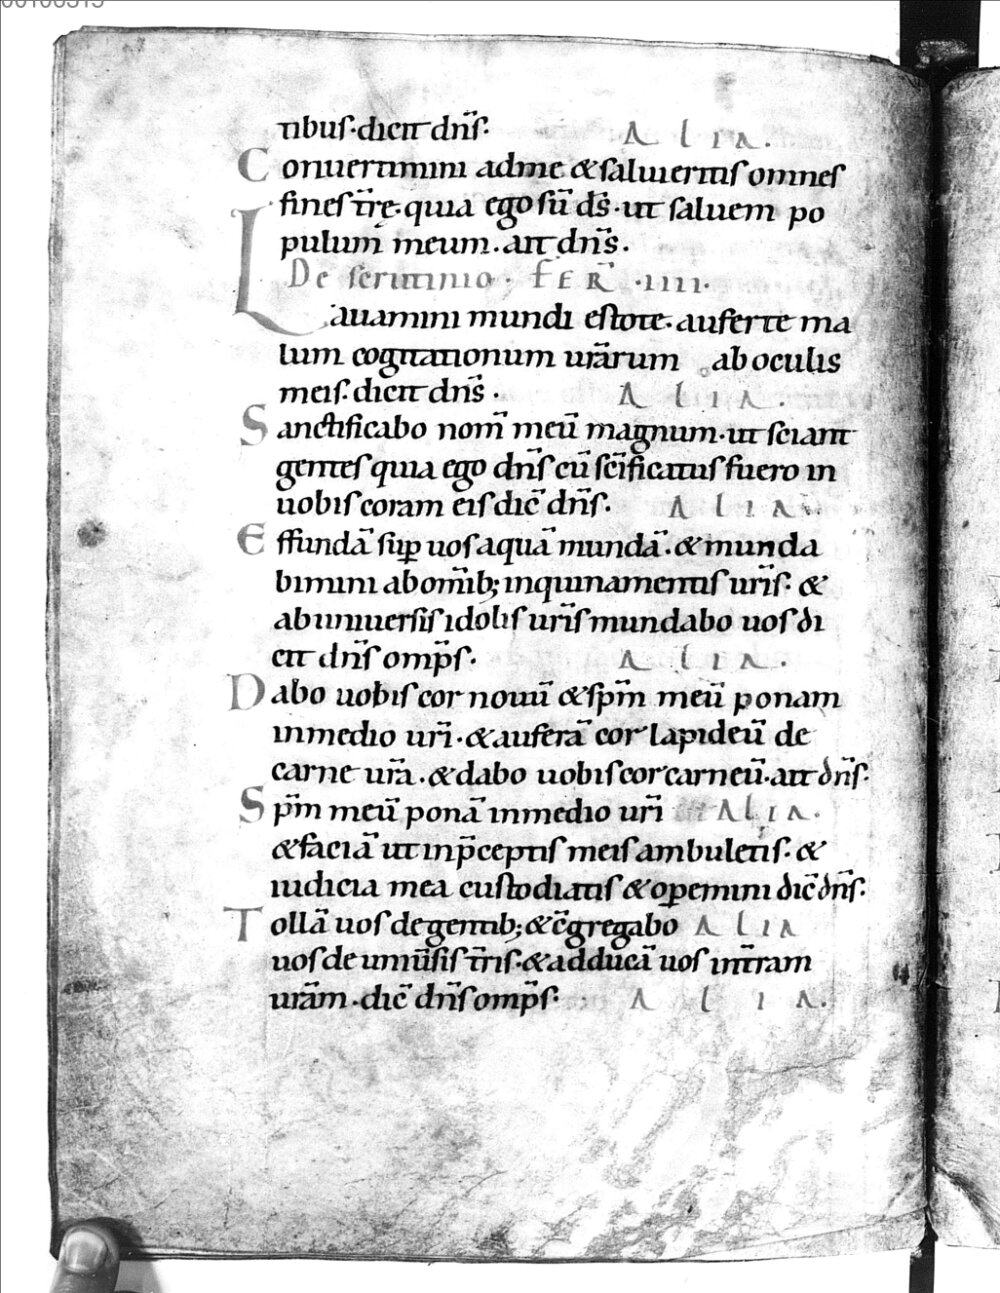 tibus·dicit dn̄s·   ALIA.
Conuertimini adme &saluieritis omnes
fines t̄rę·quia ego sū d̄s·ut saluem po
pulum meum·ait dn̄s·
De scrutinio·FER̄·IIII·
Lauamini mundi estote·auferte ma
lum cogitationum ur̄arum ab oculis
meis·dicit dn̄s·   ALIA.
Sanctificabo nom̄ meū magnum·ut sciant
gentes quia ego dn̄s cū sc̄ificatus fuero in
uobis coram eis dic̄ dn̄s·   ALIA
Effundā sup̱ uos aquā mundā·&munda
bimini abom̄ib; inquinamentis ur̄is·&
abuniuersis idolis ur̄is mundabo uos di
cit dn̄s omp̄s·   ALIA.
Dabo uobis cor nouū &sp̄m meū ponam
inmedio ur̄i·&auferā cor lapideū de
carne ur̄a·&dabo uobis cor carneū·ait dn̄s·
Sp̄m meū ponā inmedio ur̄i   ALIA.
&faciā ut inp̄ceptis meis ambuletis·&
iudicia mea custodiatis &op̱emini dic̄ dn̄s·
Tollā uos de gentib; &c̄gregabo   ALIA
uos de uniūsis t̄ris·&adducā uos int̄ram
ur̄am·dic̄ dn̄s omp̄s·   ALIA.